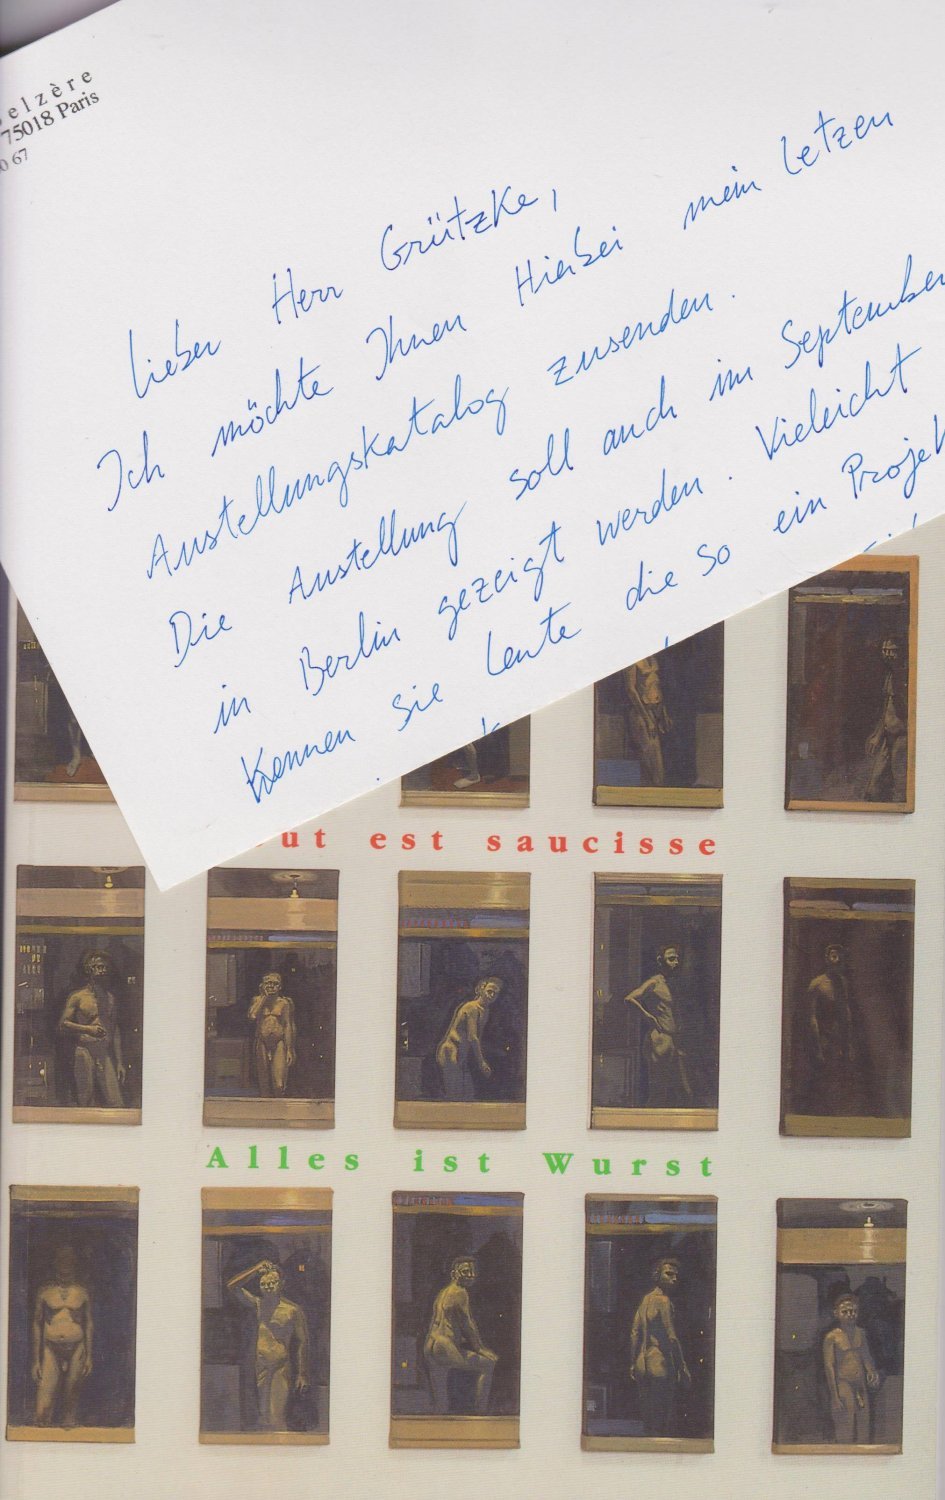 elzère
75018 Paris
0 67
Lieber Herr Grützke,
Ich möchte Ihnen Hierbei mein letzen
Austellungskatalog zusenden.
Die Austellung soll auch im September
in Berlin gezeigt werden. Vieleicht
Kennen sie Leute die so ein Projek
ut est saucisse
Alles ist Wurst